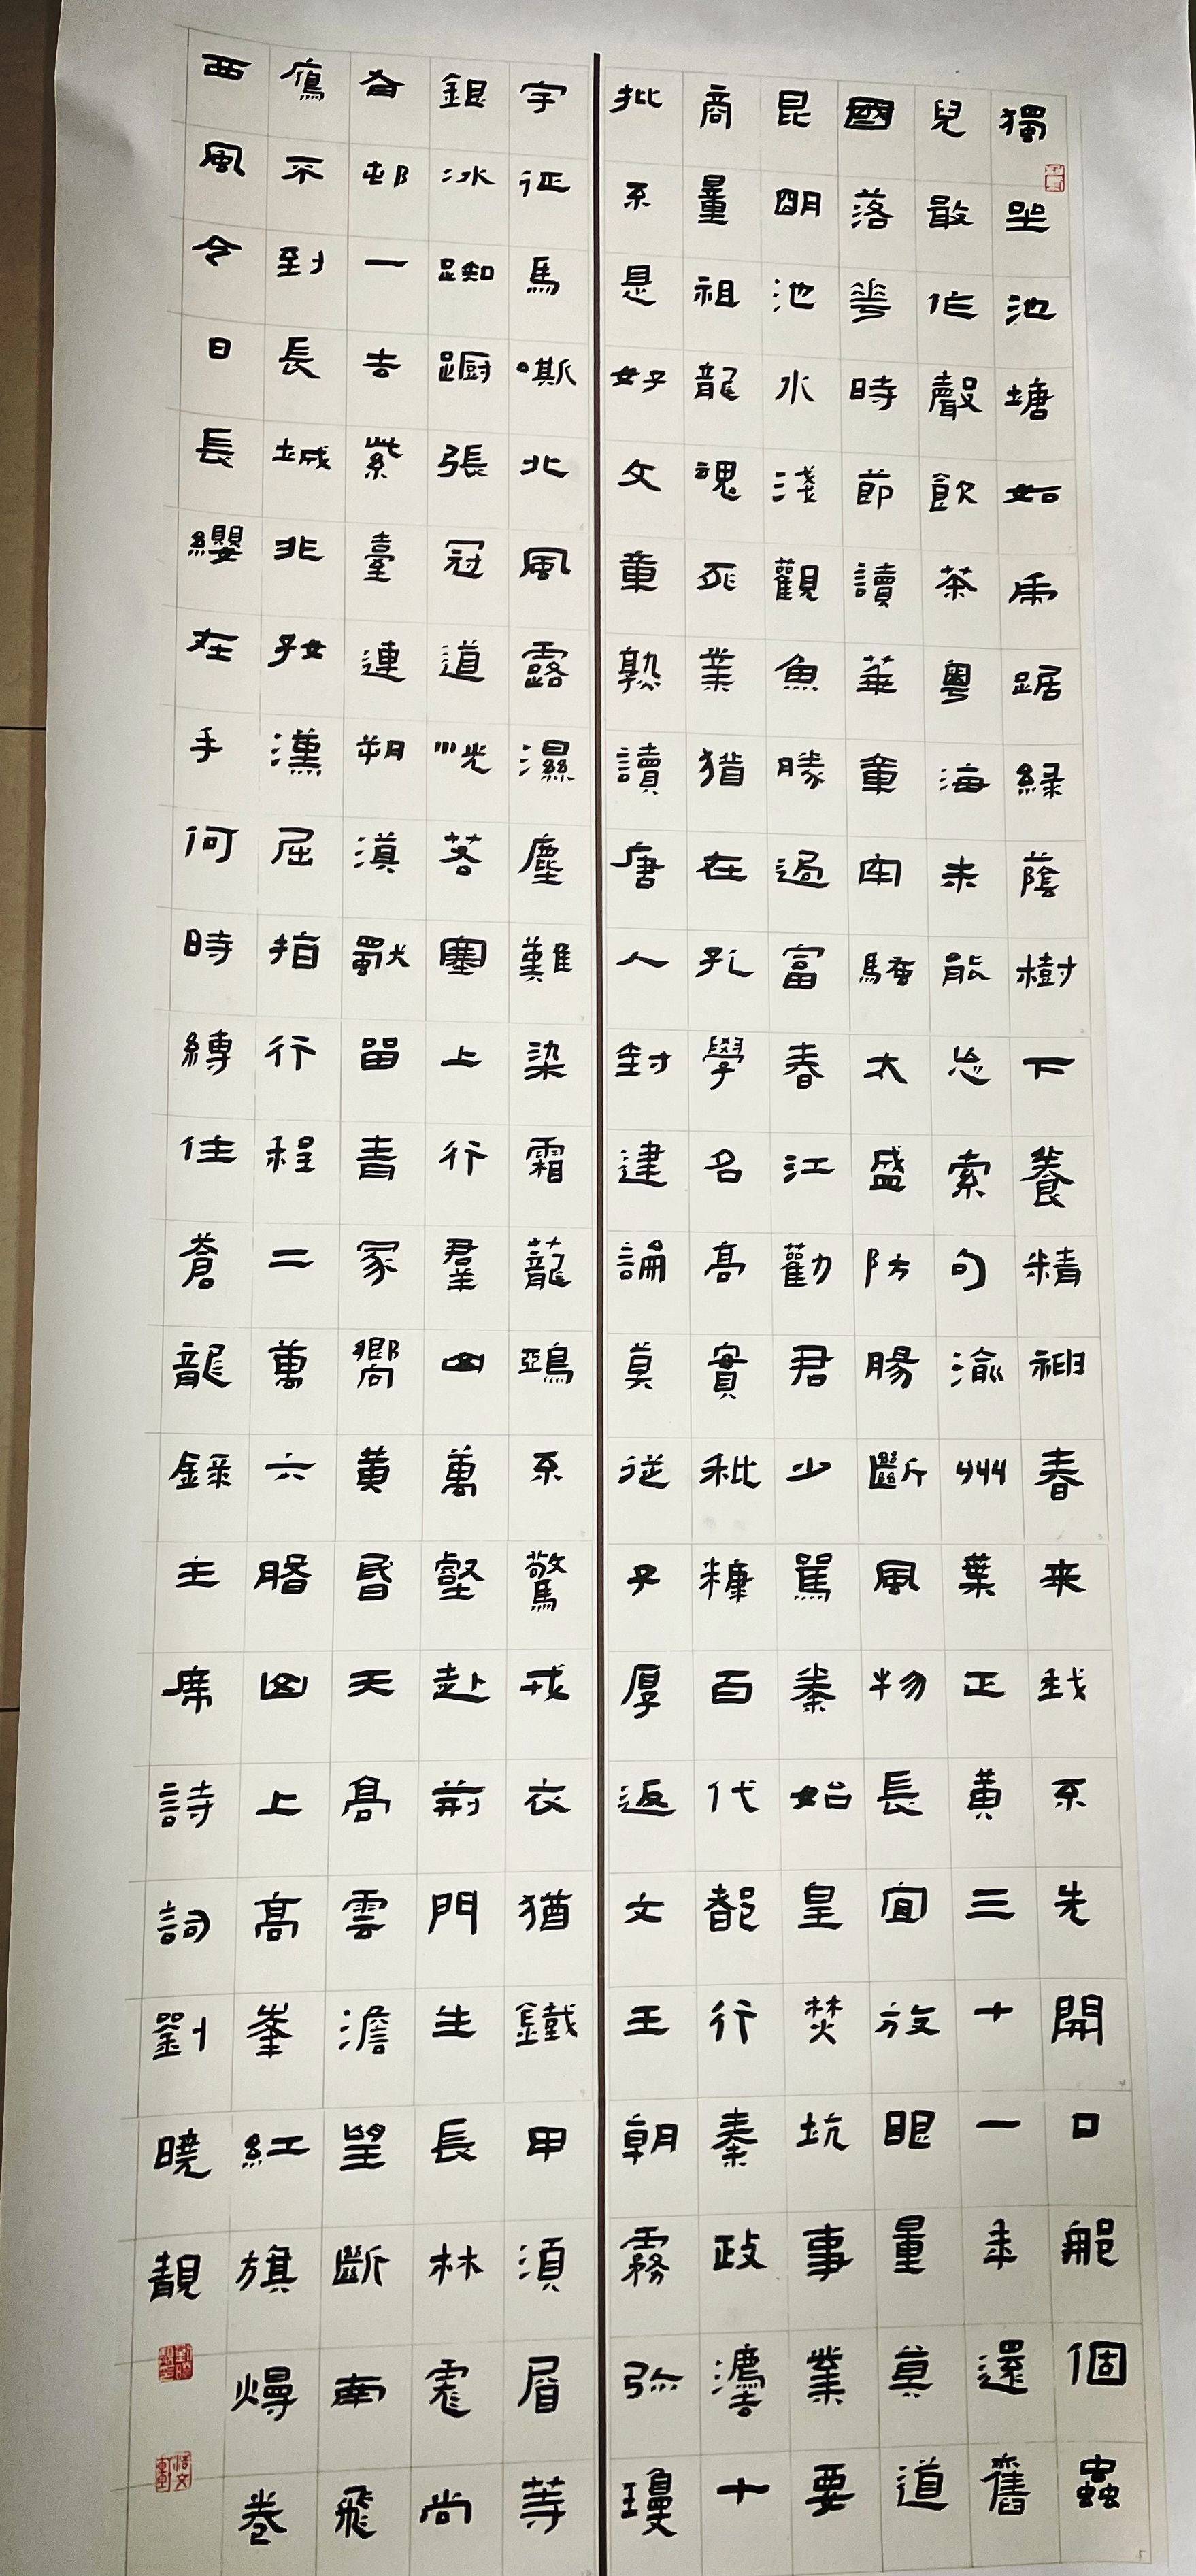 獨坐池塘如虎踞綠蔭樹下養精神春来我不先開口那個蟲
兒敢作聲飲茶粵海未能忘索句渝州葉正黃三十一年還舊
國落華時節讀華章牢騷太盛防腸斷風物長宜放眼量莫道
昆明池水淺觀魚勝過富春江勸君少罵秦始皇焚坑事業要
商量祖龍魂死業猶在孔學名高實秕糠百代都行秦政灋十
批不是好文章熟讀唐人封建論莫從子厚返文王朝霧彌瓊
宇征馬嘶北風露濕塵難染霜蘢鴉不驚戎衣猶鐵甲須眉等
銀冰踟躕張冠道恍若塞上行羣山萬壑赴荊門生長林彪尚
有邨一去紫臺連朔漠獨留青冢嚮黃昏天高雲澹望斷南飛
鴈不到長城非好漢屈指行程二萬六盤山上高峯紅旗熳卷
西風今日長纓在手何時縛住蒼龍錄主席詩詞劉曉靚